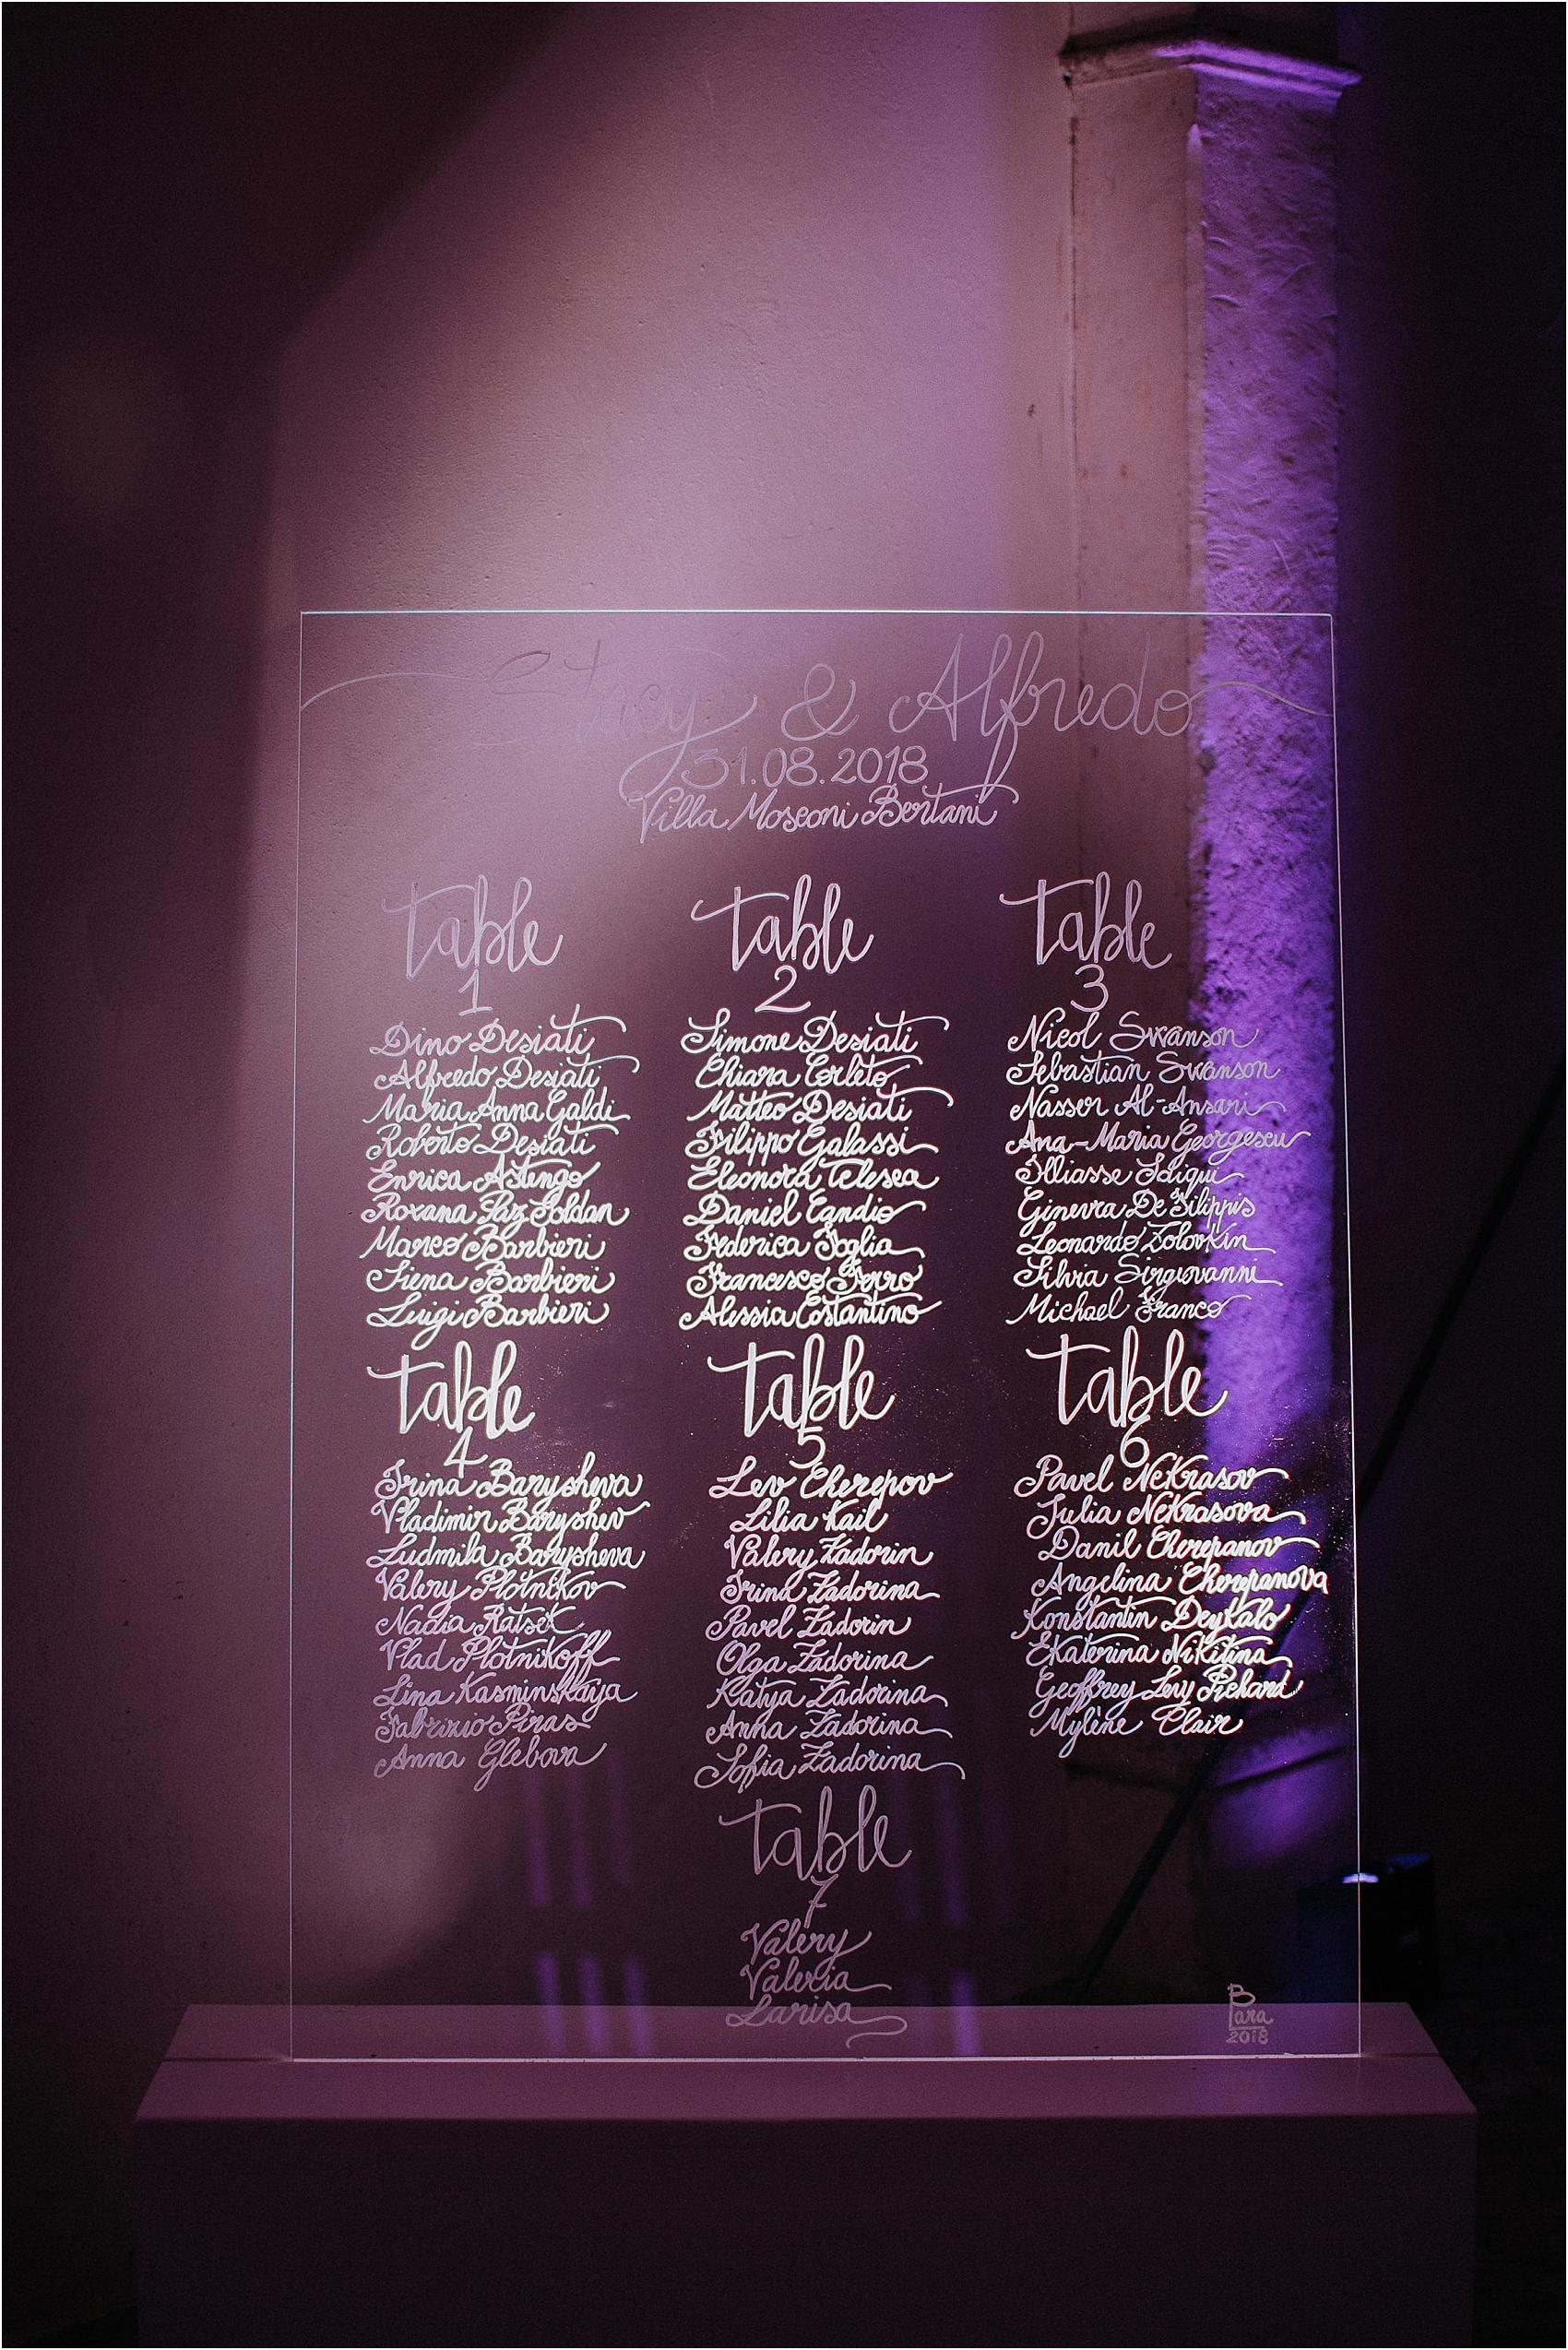 Stacy & Alfredo
31.08.2018
Villa Mosconi Bertani
table
1
Dino Desiati
Alfredo Desiati
Maria Anna Galdi
Roberto Desiati
Enrica Astengo
Roxana Paz Soldan
Marco Barbieri
Siena Barbieri
Luigi Barbieri
table
2
Simone Desiati
Chiara Corleto
Matteo Desiati
Filippo Galassi
Eleonora Telesca
Daniel Candio
Federica Foglia
Francesco Ferro
Alessia Costantino
table
3
Nicol Swanson
Sebastian Swanson
Nasser Al-Ansari
Ana-Maria Georgescu
Illiasse Sdiqui
Ginevra De Filippis
Leonardo Zolovkin
Silvia Sirgiovanni
Michael Franco
table
4
Irina Barysheva
Vladimir Baryshev
Ludmila Barysheva
Valery Plotnikov
Nadia Ratsek
Vlad Plotnikoff
Lina Kasminskaya
Fabrizio Piras
Anna Glebova
table
5
Lev Cherepov
Lilia Kail
Valery Zadorin
Irina Zadorina
Pavel Zadorin
Olga Zadorina
Katya Zadorina
Anna Zadorina
Sofia Zadorina
table
6
Pavel Nekrasov
Julia Nekrasova
Danil Cherepanov
Angelina Cherepanova
Konstantin Deykalo
Ekaterina Nikitina
Geoffrey Levy Pichard
Mylène Clair
table
7
Valery
Valeria
Larisa
2018